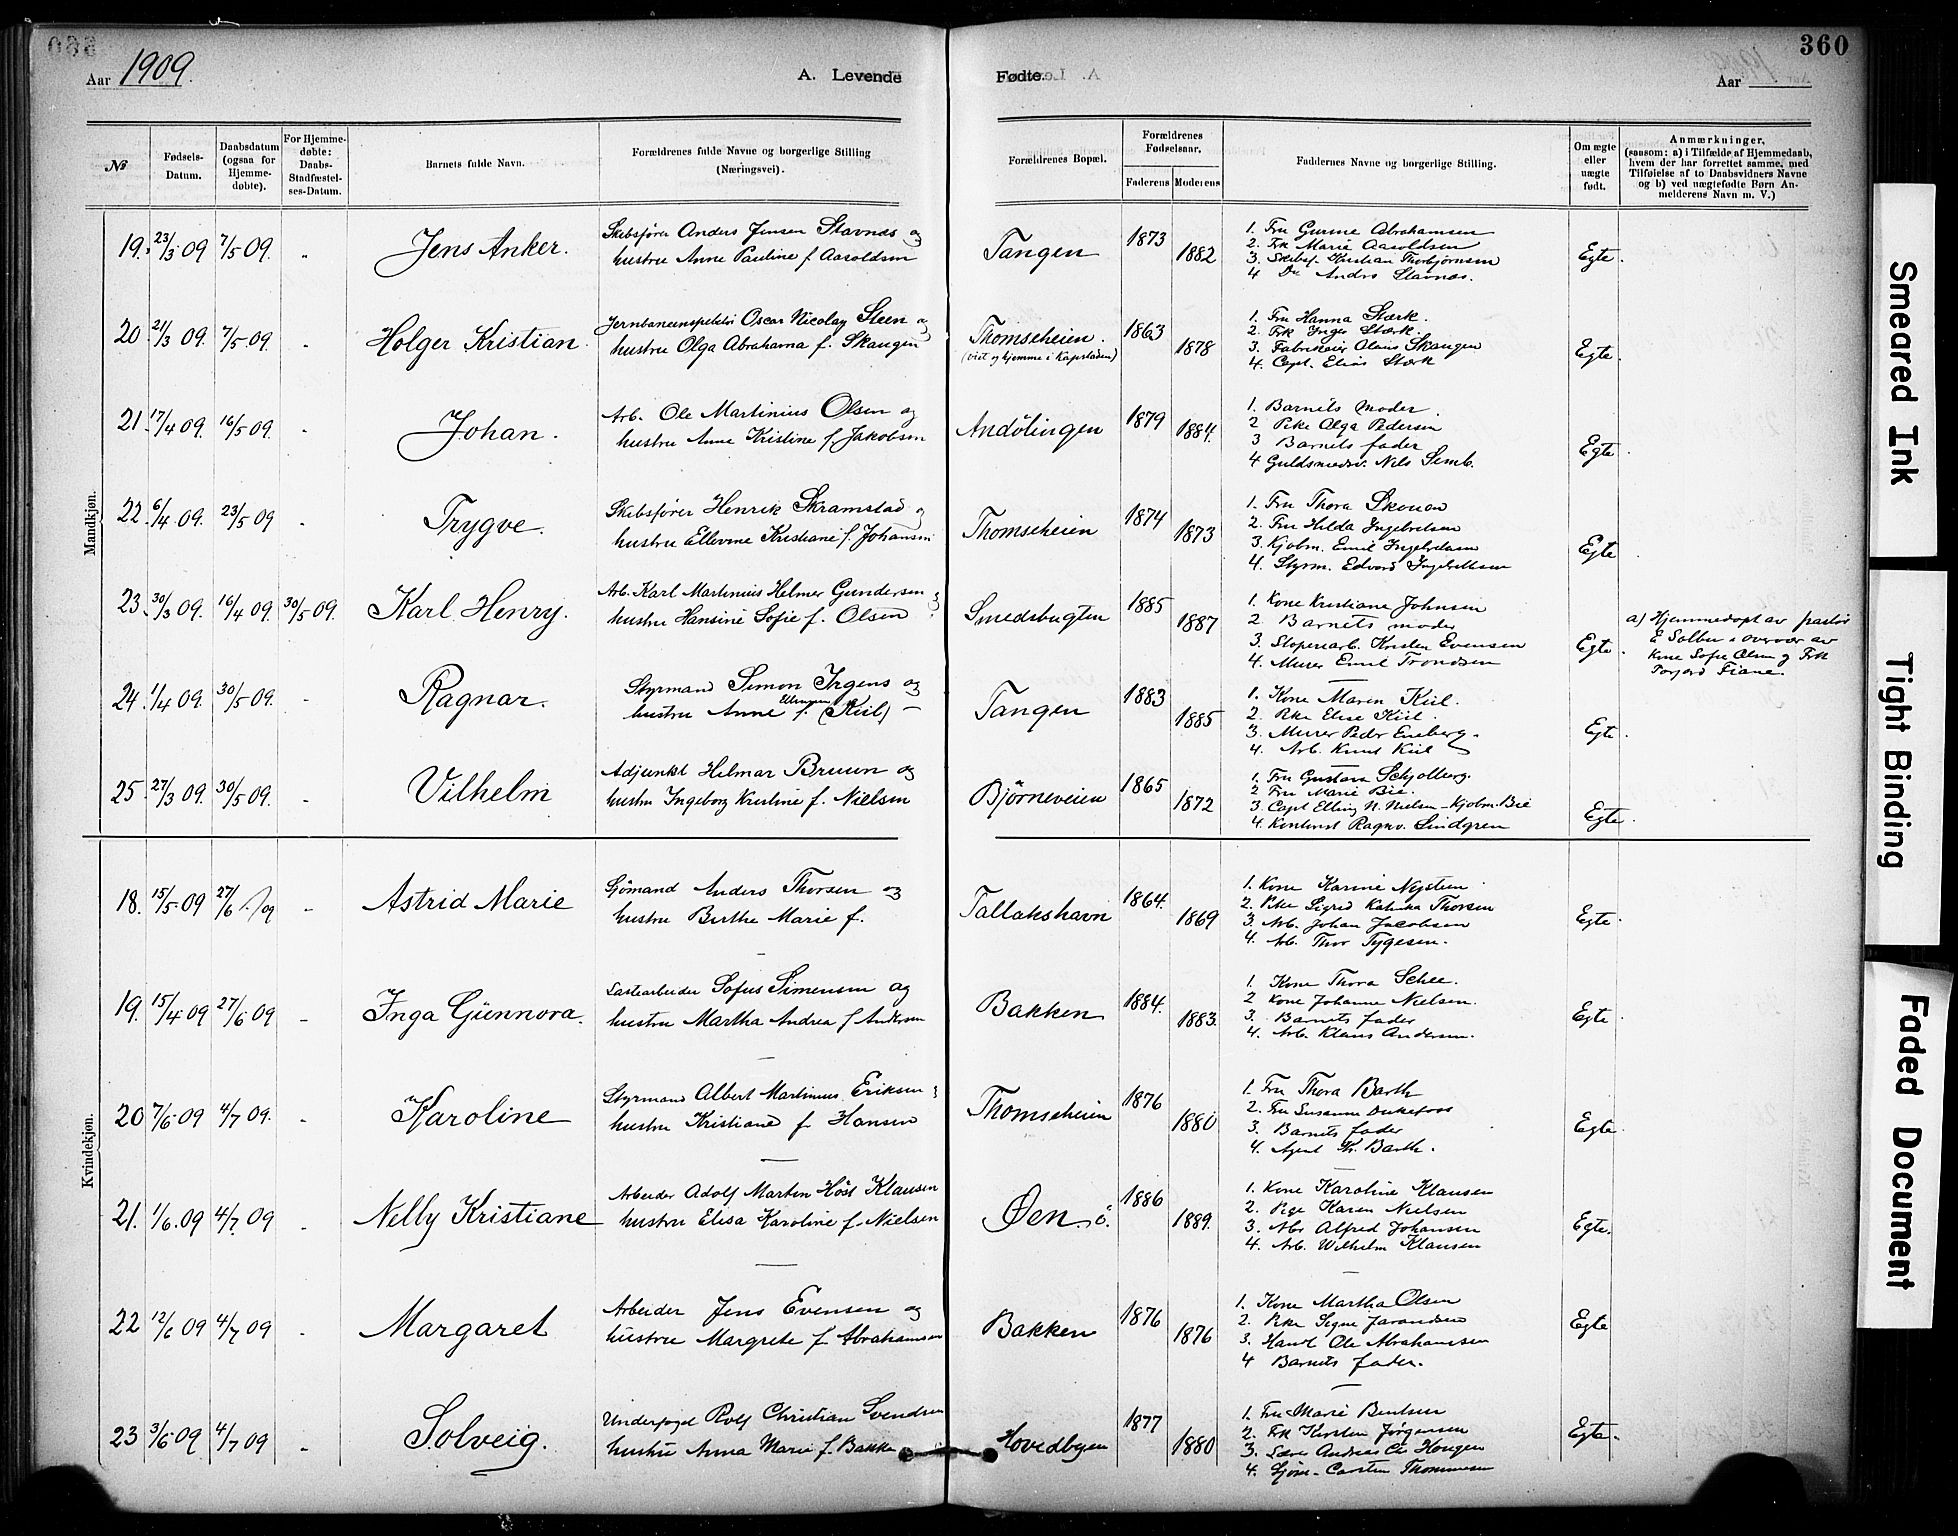 360
Aar 1909.
A. Levende Fødte.
Aar
№
Fødsels-Datum.
Daabsdatum (ogsaa for Hjemme-døbte).
For Hjemme-døbte: Daabs-Stadfæstel-ses-Datum.
Barnets fulde Navn.
Forældrenes fulde Navne og borgerlige Stilling (Næringsvei).
Forældrenes Bopæl.
Forældrenes Fødselsaar.
Faderens Moderens
Faddernes Navne og borgerlige Stilling.
Om ægte eller uægte født.
Anmærkninger, (saasom: a) i Tilfælde af Hjemmedaab, hvem der har forrettet samme, med Tilføielse af to Daabsvidners Navne og b) ved uægtefødte Børn An-melderens Navn m. V.)
Mandkjøn.
19. 23/3 09 7/5 09. Jens Anker.
Skibsfører Anders Jensen Stavnes og
hustru Anne Pauline f. Aaroldsen
Tangen 1873 1882
1. Fru Gurine Abrahamsen
2. Frk Marie Aaroldsen
3. Skibsf. Kristian Thorbjørnsen
4. Do Andrs Stavnes.
Egte
20 21/3 09. 7/5 09. Holger Kristian.
Jernbaneinspektør Oscar Nicolay Steen og
hustru Olga Abrahama f. Skaugen
Thomseheien. (viet og hjemme i Kapstaden) 1863 1878
1. Fru Hanna Stærk.
2. Frk Inger Stærk.
3. Fabrikeier Olaus Skaugen
4. Capt. Elias Stærk
Egte.
21 17/4 09. 16/5 09. Johan.
Arb. Ole Martinius Olsen og
hustru Anne Kristine f. Jakobsen
Andølingen 1879 1884.
1. Barnets Moder.
2 Pike Olga Pedersen
3 Barnets fader
4 Guldsmedsv. Nils Semb.
Egte
22. 6/4 09. 23/5 09 Trygve.
Skibsfører Henrik Skramstad og
hustru Ellevine Kristiane f. Johansen
Thomseheien 1874 1873
1. Fru Thora Skouen
2. Fru Hilda Ingebretsen
3. Kjøbm. Emil Ingebretsen
4. Styrm. Edvard Ingebretsen
Egte
23. 30/3 09. 16/4 09. 30/5 09. Karl Henry.
Arb. Karl Martinius Helmer Gundersen og
hustru Hansine Sofie f. Olsen
Smedsbugten 1885 1887
1. Kone Kristiane Johnsen
2. Barnets moder
3. Støperiarb. Karsten Evensen
4. Murer Emil Trondsen
Egte.
a) Hjemmedøpt av pastor
E Sølber i overvær av
Kone Sofie Olsen og Frk
Torjord Fiane.
24. 1/4 09. 30/5 09. Ragnar.
Styrmand Simon Irgens og
hustru Anne f. Ellingsen (Kiil)
Tangen 1883 1885
1. Kone Maren Kiil.
2. Pike Elise Kiil.
3. Murer Peder Eneberg.
4. Arb. Knut Kiil
Egte.
25. 27/3 09. 30/5 09. Vilhelm
Adjunkt Hilmar Bruun og
hustru Ingeborg Kristine f. Nielsen
Bjørneveien 1865 1872
1. Fru Gustava Schjølberg.
2 Fru Marie Bie.
3. Capt Elling N. Nielsen - Kjøbm. Bie
4. Kontorist Ragnv. Lindgren
Egte.
Kvindekjøn.
18. 15/5 09 27/6 09 Astrid Marie
Sjømand Anders Thorsen og
hustru Birthe Marie f.
Tallakshavn 1864. 1869
1. Kone Karine Nysteen
2. Pike Sigrid Katinka Thorsen
3. Arb. Johan Jacobsen
4. Arb. Thor Tygesen.
Egte.
19. 15/4 09 27/6 09 Inga Gunnora.
Lastearbeider Sofus Simensen og
hustru Martha Andrea f Andersen
Bakken 1884. 1883.
1. Kone Thora Schee.
2 Kone Johanne Nielsen.
3. Barnets fader
4. Arb. Klaus Andersen.
Egte
20 7/6 09 4/7 09. Karoline
Styrmand Albert Martinius Eriksen og
hustru Kristiane f. Hansen
Thomseheien 1876 1880
1. Fru Thora Barth
2. Fru Susanne Dukefoss
3. Barnets fader
4. Agent Kr. Barth.
Egte.
21. 1/6.09 4/7 09 Nelly Kristiane
Arbeider Adolf Marten Høst Klausen
hustru Elisa Karoline f. Nielsen
Øen i Ö. 1886 1889.
1. Kone Karoline Klausen
2. Pige Karen Nielsen
3. Abr Alfred Johansen
4. Arb. Wilhelm Klausen
Egte.
22 12/6 09 4/7 09 Margaret
Arbeider Jens Evensen og
hustru Margrete f. Abrahamsen
Bakken 1876 1876
1. Kone Martha Olsen
2. Pike Signe Jarandsen
3. Handl Ole Abrahamsen
4 Barnets fader.
Egte
23 3/6 09 4/7 09 Solveig.
Underfoged Rolf Christian Svendsen
hustru Anna Marie f. Bakke
Hovedbyen 1877 1880
1. Fru Marie Bentsen
2. Frk Kirsten Jørgensen
3. Lærer Andreas Haugen
4. Sjøm- Carsten Thommesen
Egte.
Smeared Ink
Tight Binding
Faded Document